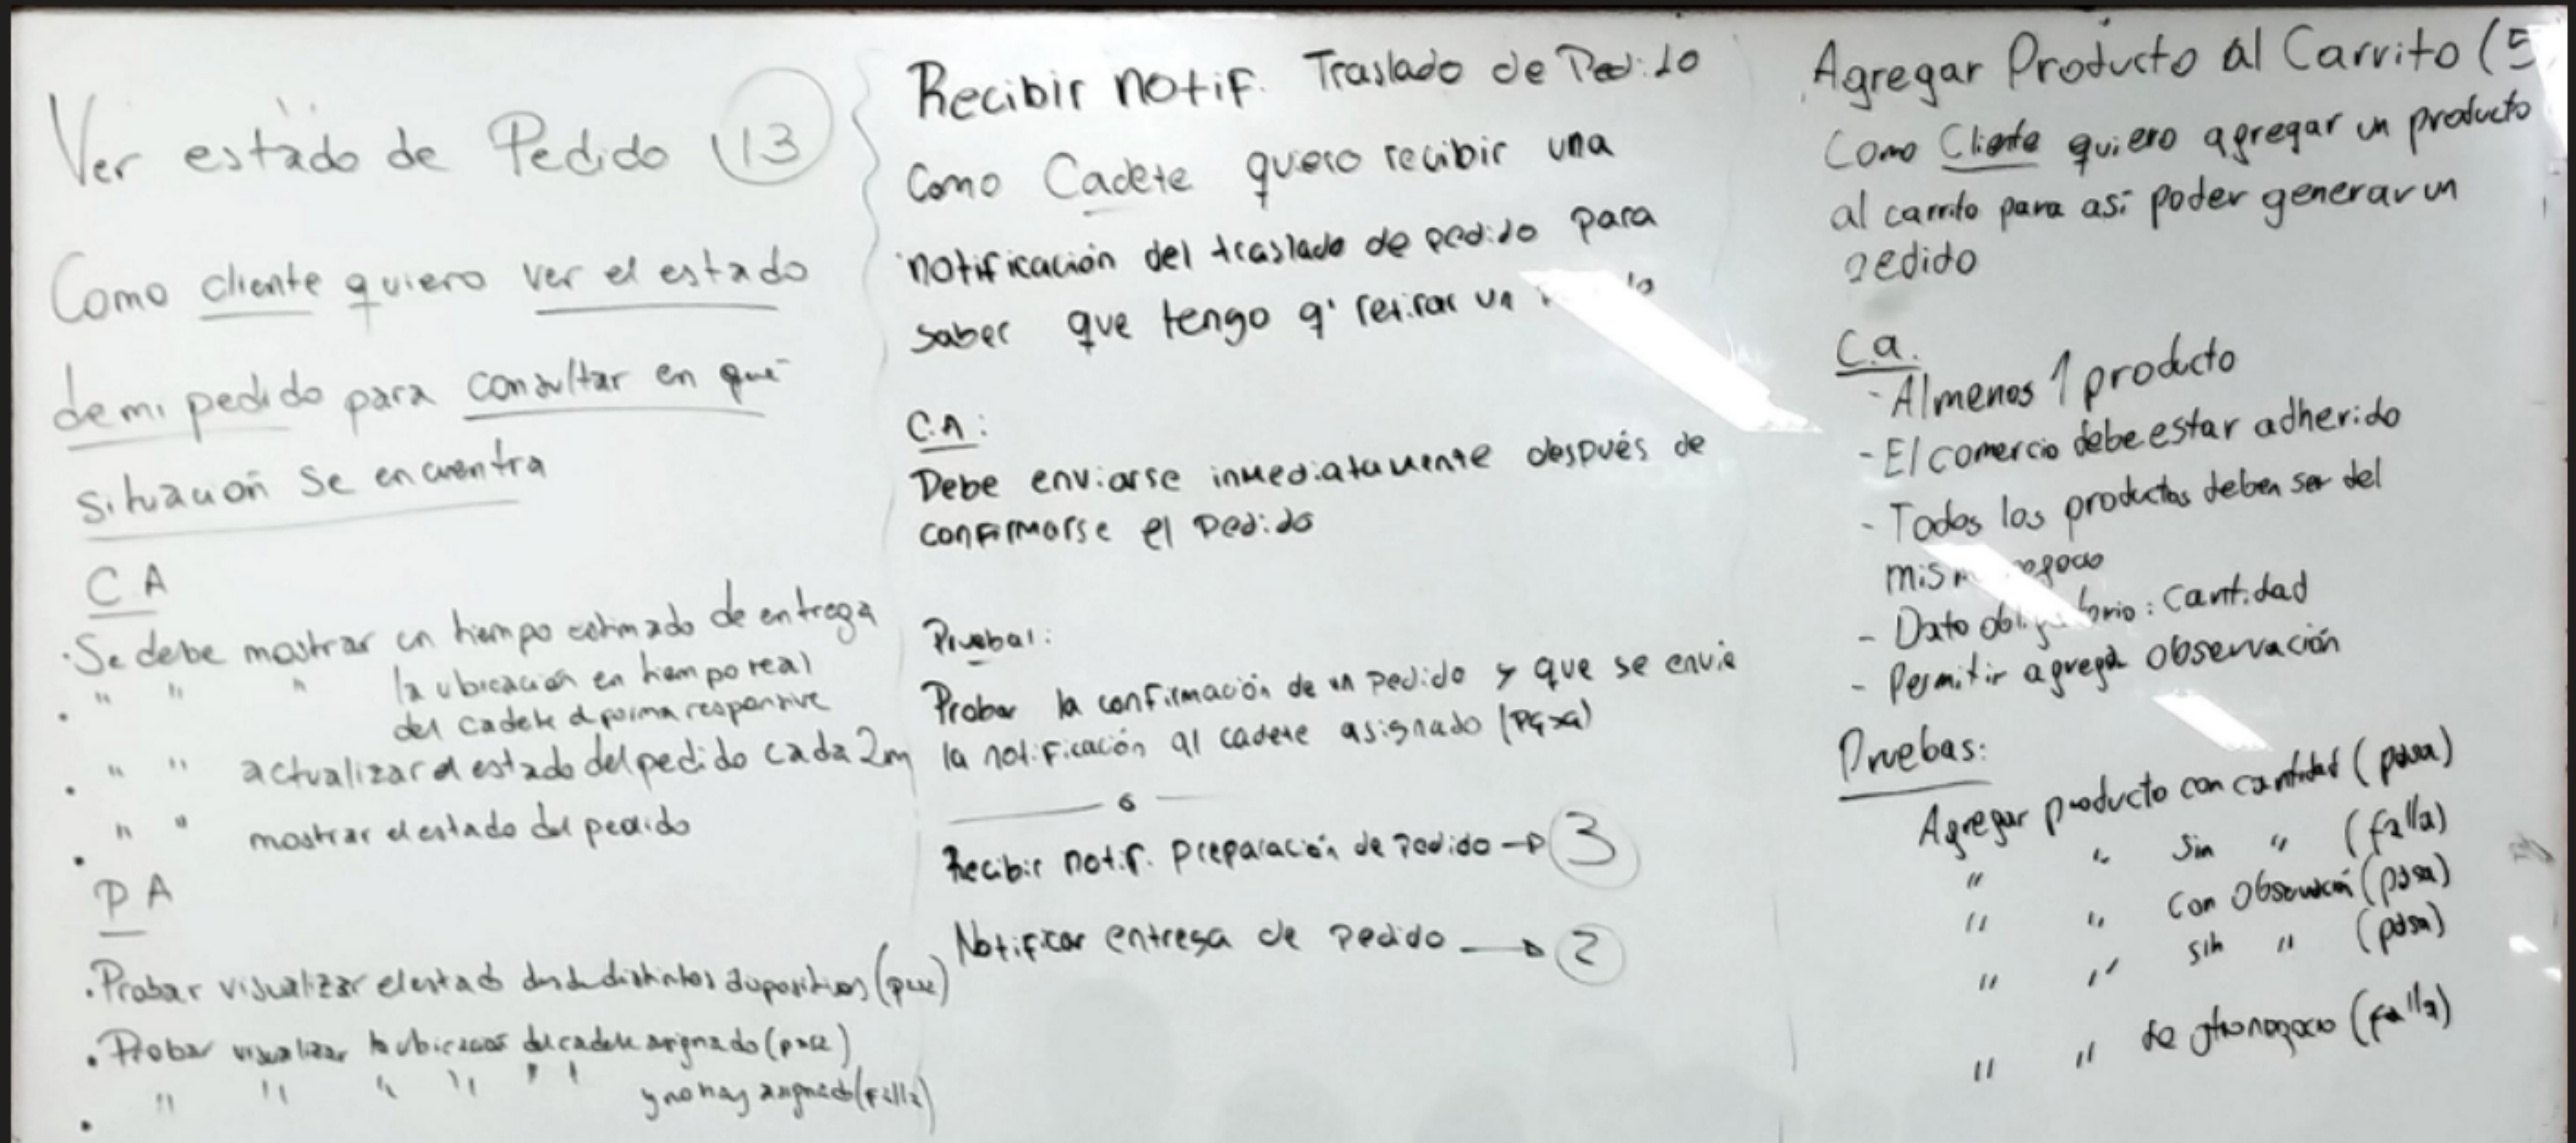 Ver estado de Pedido (13)
Como cliente quiero ver el estado
de mi pedido para consultar en qué
situación se encuentra
CA
· Se debe mostrar un tiempo estimado de entrega
· " " " la ubicación en tiempo real
del cadete d forma responsive
· " " actualizar el estado del pedido cada 2m
· " " mostrar el estado del pedido
PA
· Probar visualizar el estado desde distintos dispositivos (pasa)
· Probar visualizar la ubicación del cadete asignado (pasa)
· " " " " " " y no hay asignado (falla)
Recibir notif. Traslado de Pedido
Como Cadete quiero recibir una
notificación del traslado de pedido para
saber que tengo q' retirar un
C.A:
Debe enviarse inmediatamente después de
confirmarse el pedido
Prueba:
Probar la confirmación de un pedido y que se envie
la notificación al cadete asignado (pasa)
Recibir notif. preparación de pedido → 3
Notificar entrega de pedido → 2
Agregar Producto al Carrito (5
Como Cliente quiero agregar un producto
al carrito para así poder generar un
pedido
C.a.
- Al menos 1 producto
- El comercio debe estar adherido
- Todos los productos deben ser del
mismo negocio
- Dato obligatorio: Cantidad
- Permitir agregar observación
Pruebas:
Agregar producto con cantidad (pasa)
" " Sin " (falla)
" " Con Observación (pasa)
" " sin " (pasa)
" " de otro negocio (falla)